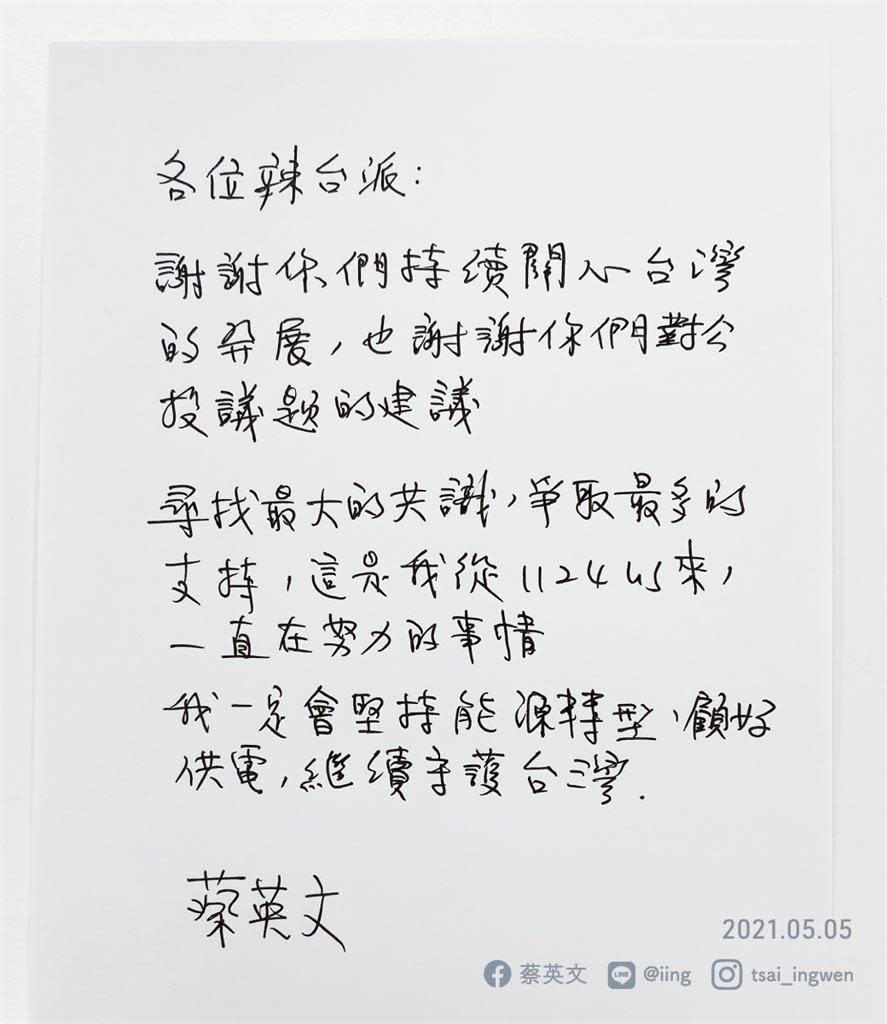 各位辣台派：
謝謝你們持續關心台灣
的發展，也謝謝你們對公
投議題的建議
尋找最大的共識，爭取最多的
支持，這是我從1124以來，
一直在努力的事情
我一定會堅持能源轉型、顧好
供電，繼續守護台灣.
蔡英文
2021.05.05
蔡英文 LINE @iing tsai_ingwen